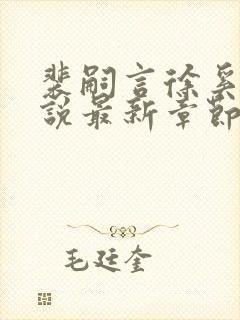 裴嗣言徐
說最新章節
毛廷奎